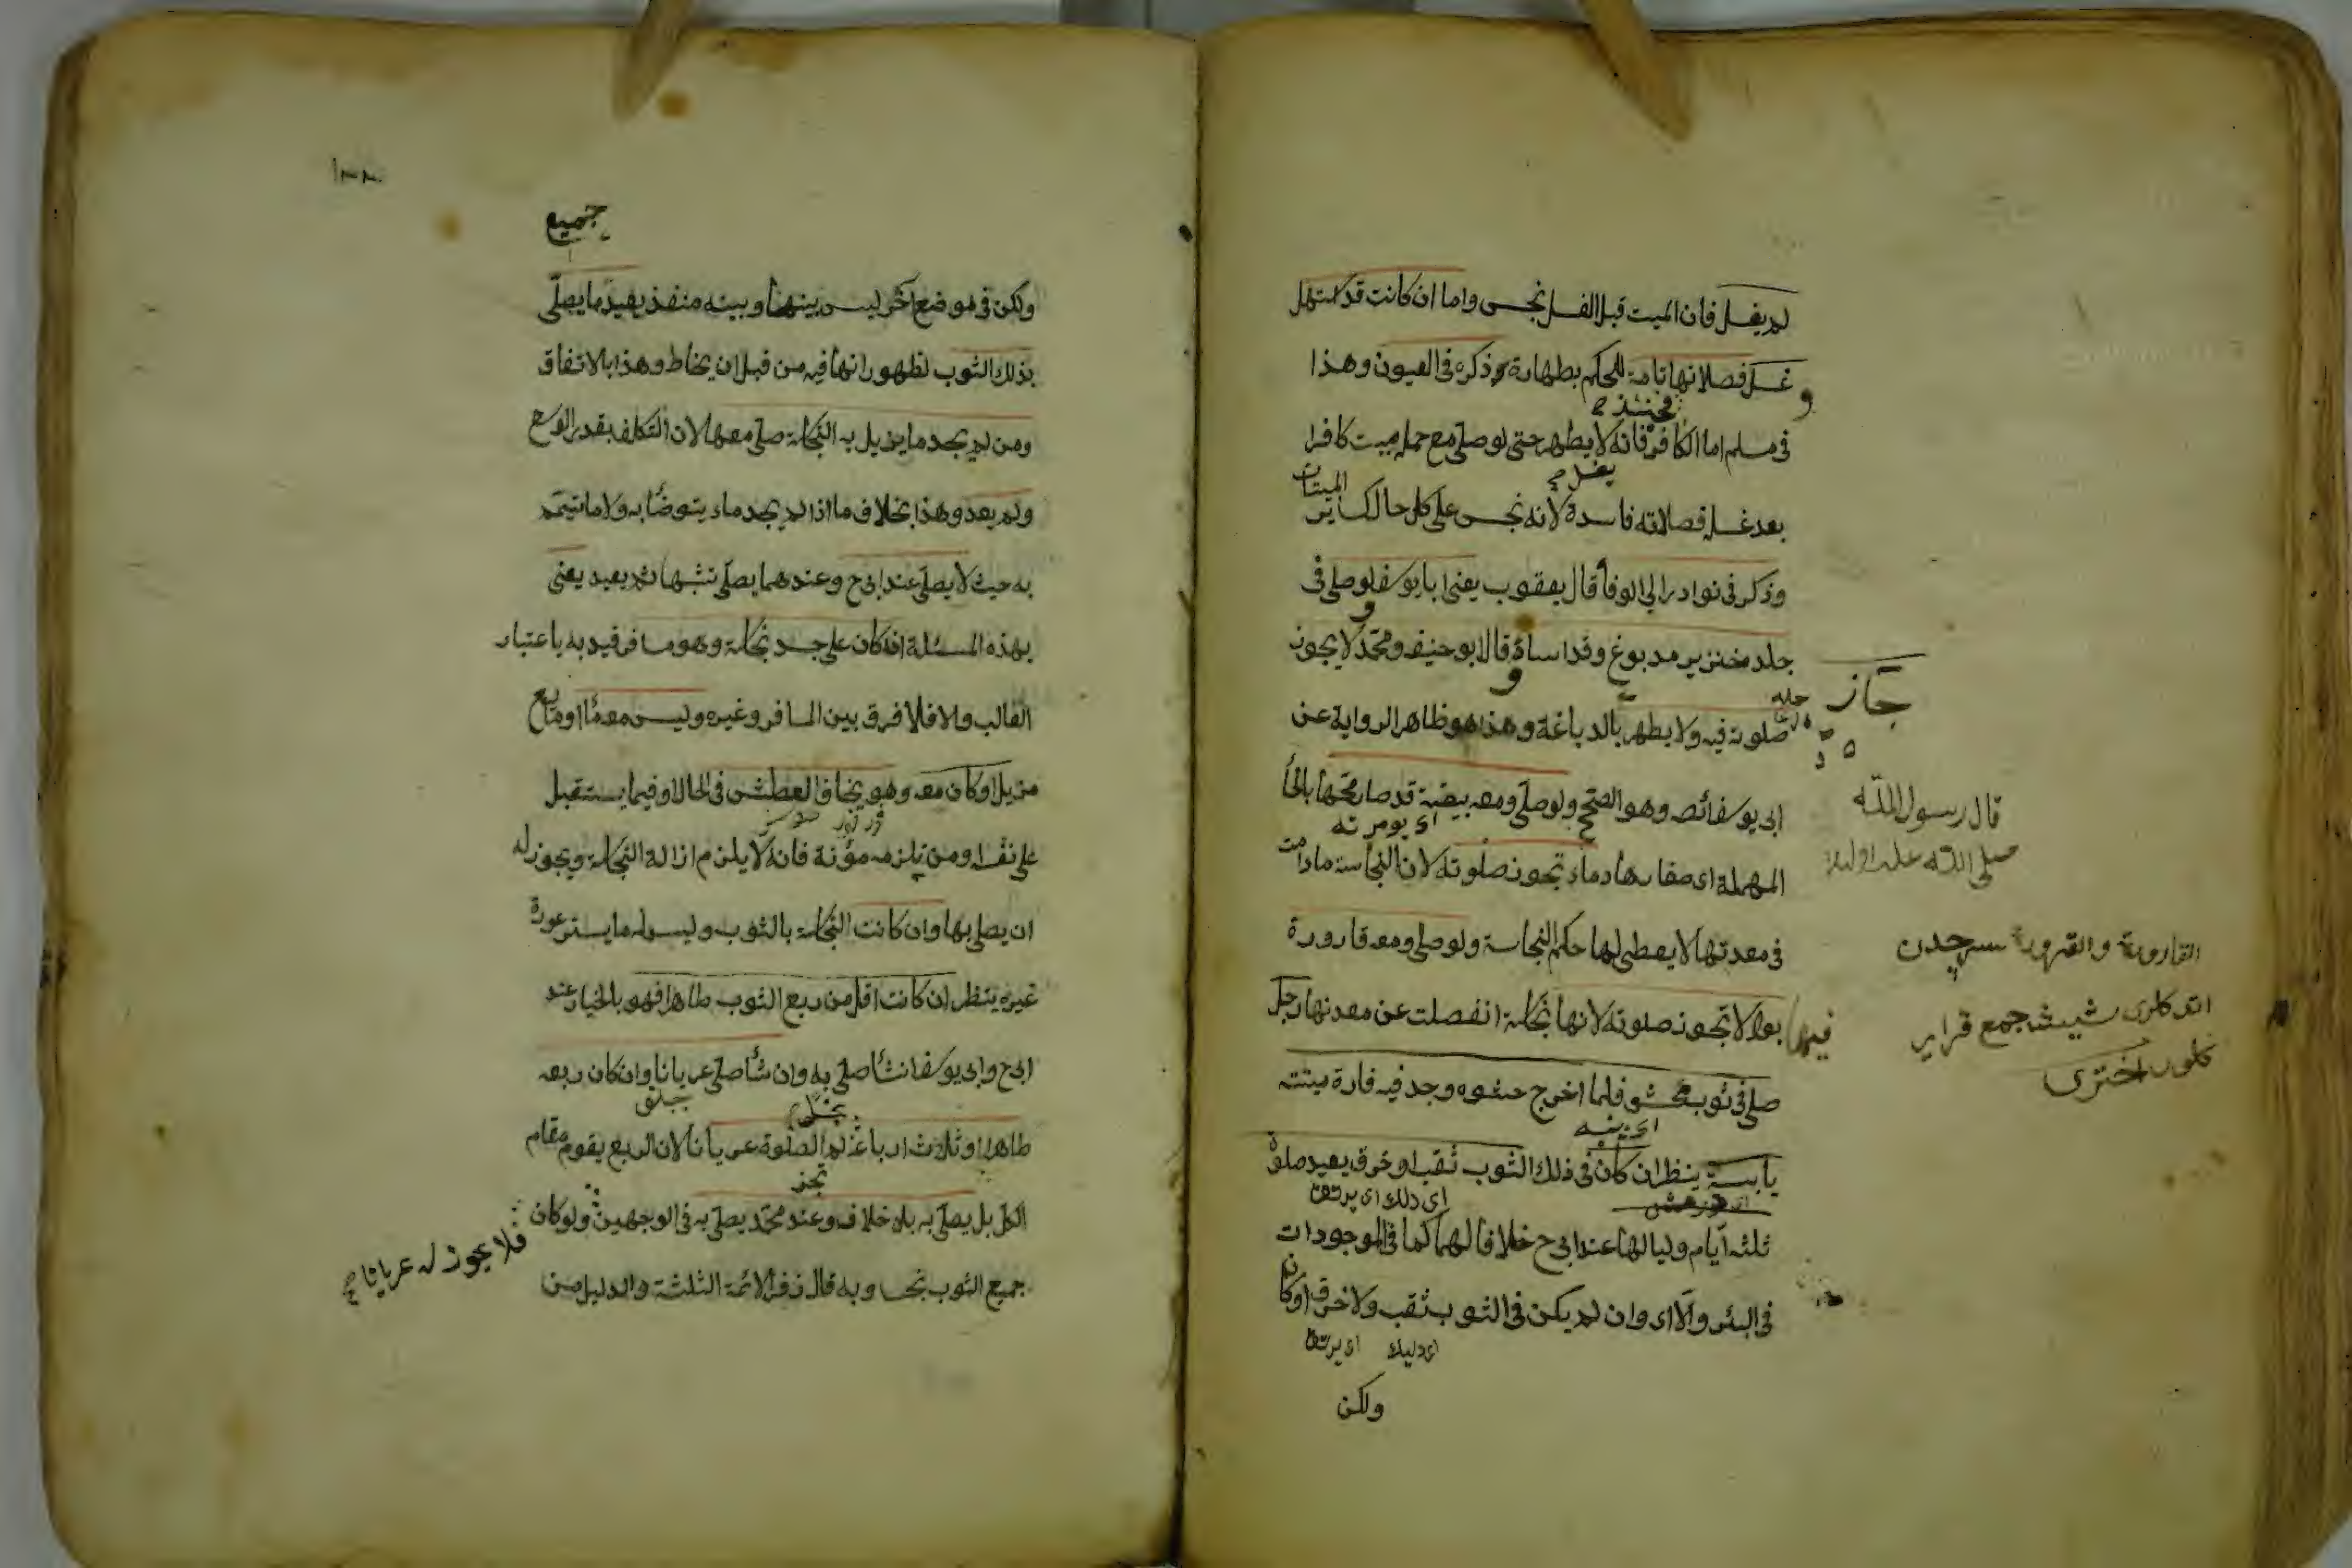 لم يغسل فان الميت قبل الغسل نجس واما ان كانت قد استهل
وغسل فصلاتها تامة للحكم بطهارته وذكره في العيون وهذا
فحينئذ صح
في مسلم اما الكافر فانه لا يطهر حتى لو صلى مع حمله ميت كافرا
يغسل صح
الميتات
بعد غسله فصلاته فاسدة لانه نجس على كل حال كسائر
وذكر في نوادر ابي الوفا قال يعقوب يعني ابا يوسف لو صلى في
جلد خنزير مدبوغ وقد اساء و قال ابو حنيفه ومحمد لا يجوز
جاز
جلده
صلوته فيه ولا يطهر بالدباغة وهذا هو ظاهر الرواية عن
ابي يوسف ائصه وهو الصح ولو صلى ومعه بيضة قد صار محها بالحأ
المهملة اى صفارها دماء تجوز صلوته لان النجاسة مادامت
في معدنها لا يعطى لها حكم النجاسة ولو صلى ومعه قارورة
فيها بول لا تجوز صلوته لانها نجاسة انفصلت عن معدنها رجل
صلى في ثوب محشو فلما اخرج حشوه وجد فيه فارة ميتة
اى پنبه
يابسة ينظر ان كان في ذلك الثوب ثقب او خرق يعيد صلوة
اى دلك اى يرتق
ثلثه ايام ولياليها عند ابي ح خلافا لهما كما في الموجودات
في البئر والا اى وان لم يكن في الثوب ثقب ولا خرق او كان
اى دليك اى يرتق
ولكن
قال رسول الله
صلى الله عليه
القارورة والقرورة سرچدن
شيشه جمع قرارير
اختري
جميع
ولكن في موضع اخر ليس بينها وبينه منفذ يعيد ما يصلى
بذلك الثوب لظهور انها فيه من قبل ان يخاط وهذا بالاتفاق
ومن لم يجد ما يزيل به النجاسة صلى معها لان التكلف بقدر الوسع
ولم يعد وهذا بخلاف ما اذا لم يجد ماء يتوضأ به ولا ما تيمم
به حيث لا يصلى عند ابى ح وعندهما يصلى تشبها ثم يعيد يعنى
بهذه المسئلة انه كان على جسد نجاسة وهو مسافر قيد به باعتبار
الغالب والا فلا فرق بين المسافر وغيره وليس معه ماء او مايع
مزيل او كان معه وهو يخاف العطش في الحال او فيما يستقبل
على نفسه او من يلزمه مؤنة فانه لا يلزم ازالة النجاسة ويجوز له
ان يصلى بها وان كانت النجاسة بالثوب وليس له ما يستر عورة
غيره ينظر ان كانت اقل من ربع الثوب طاهرا فهو بالخيار عند
ابى ح وابى يوسف ان شأ صلى به وان شأ صلى عريانا وان كان ربعه
طاهرا او ثلاث ارباعه لم الصلوة عريانا لان الربع يقوم مقام
تجز
الكل بل يصلى به بلا خلاف وعند محمد يصلى به في الوجهين ولو كان
فلا يجوز له عريانا صح
جميع الثوب نجسا وبه قال زفر الائمة الثلثة والدليل من